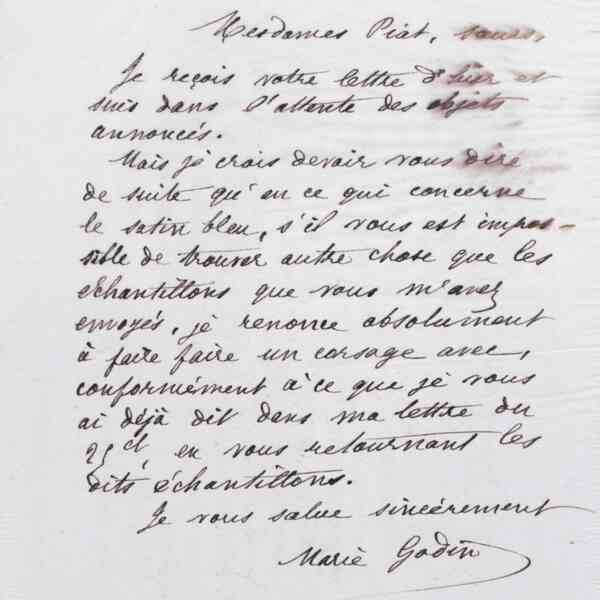 Mesdames Piat, sœurs,
Je reçois votre lettre d'hier et
suis dans l'attente des objets
annoncés.
Mais je crois devoir vous dire
de suite qu'en ce qui concerne
le satin bleu, s'il vous est impos-
sible de trouver autre chose que les
échantillons que vous m'avez
envoyés, je renonce absolument
à faire faire un corsage avec,
conformément à ce que je vous
ai déjà dit dans ma lettre du
25 ct, en vous retournant les
dits échantillons.
Je vous salue sincèrement
Marie Godin